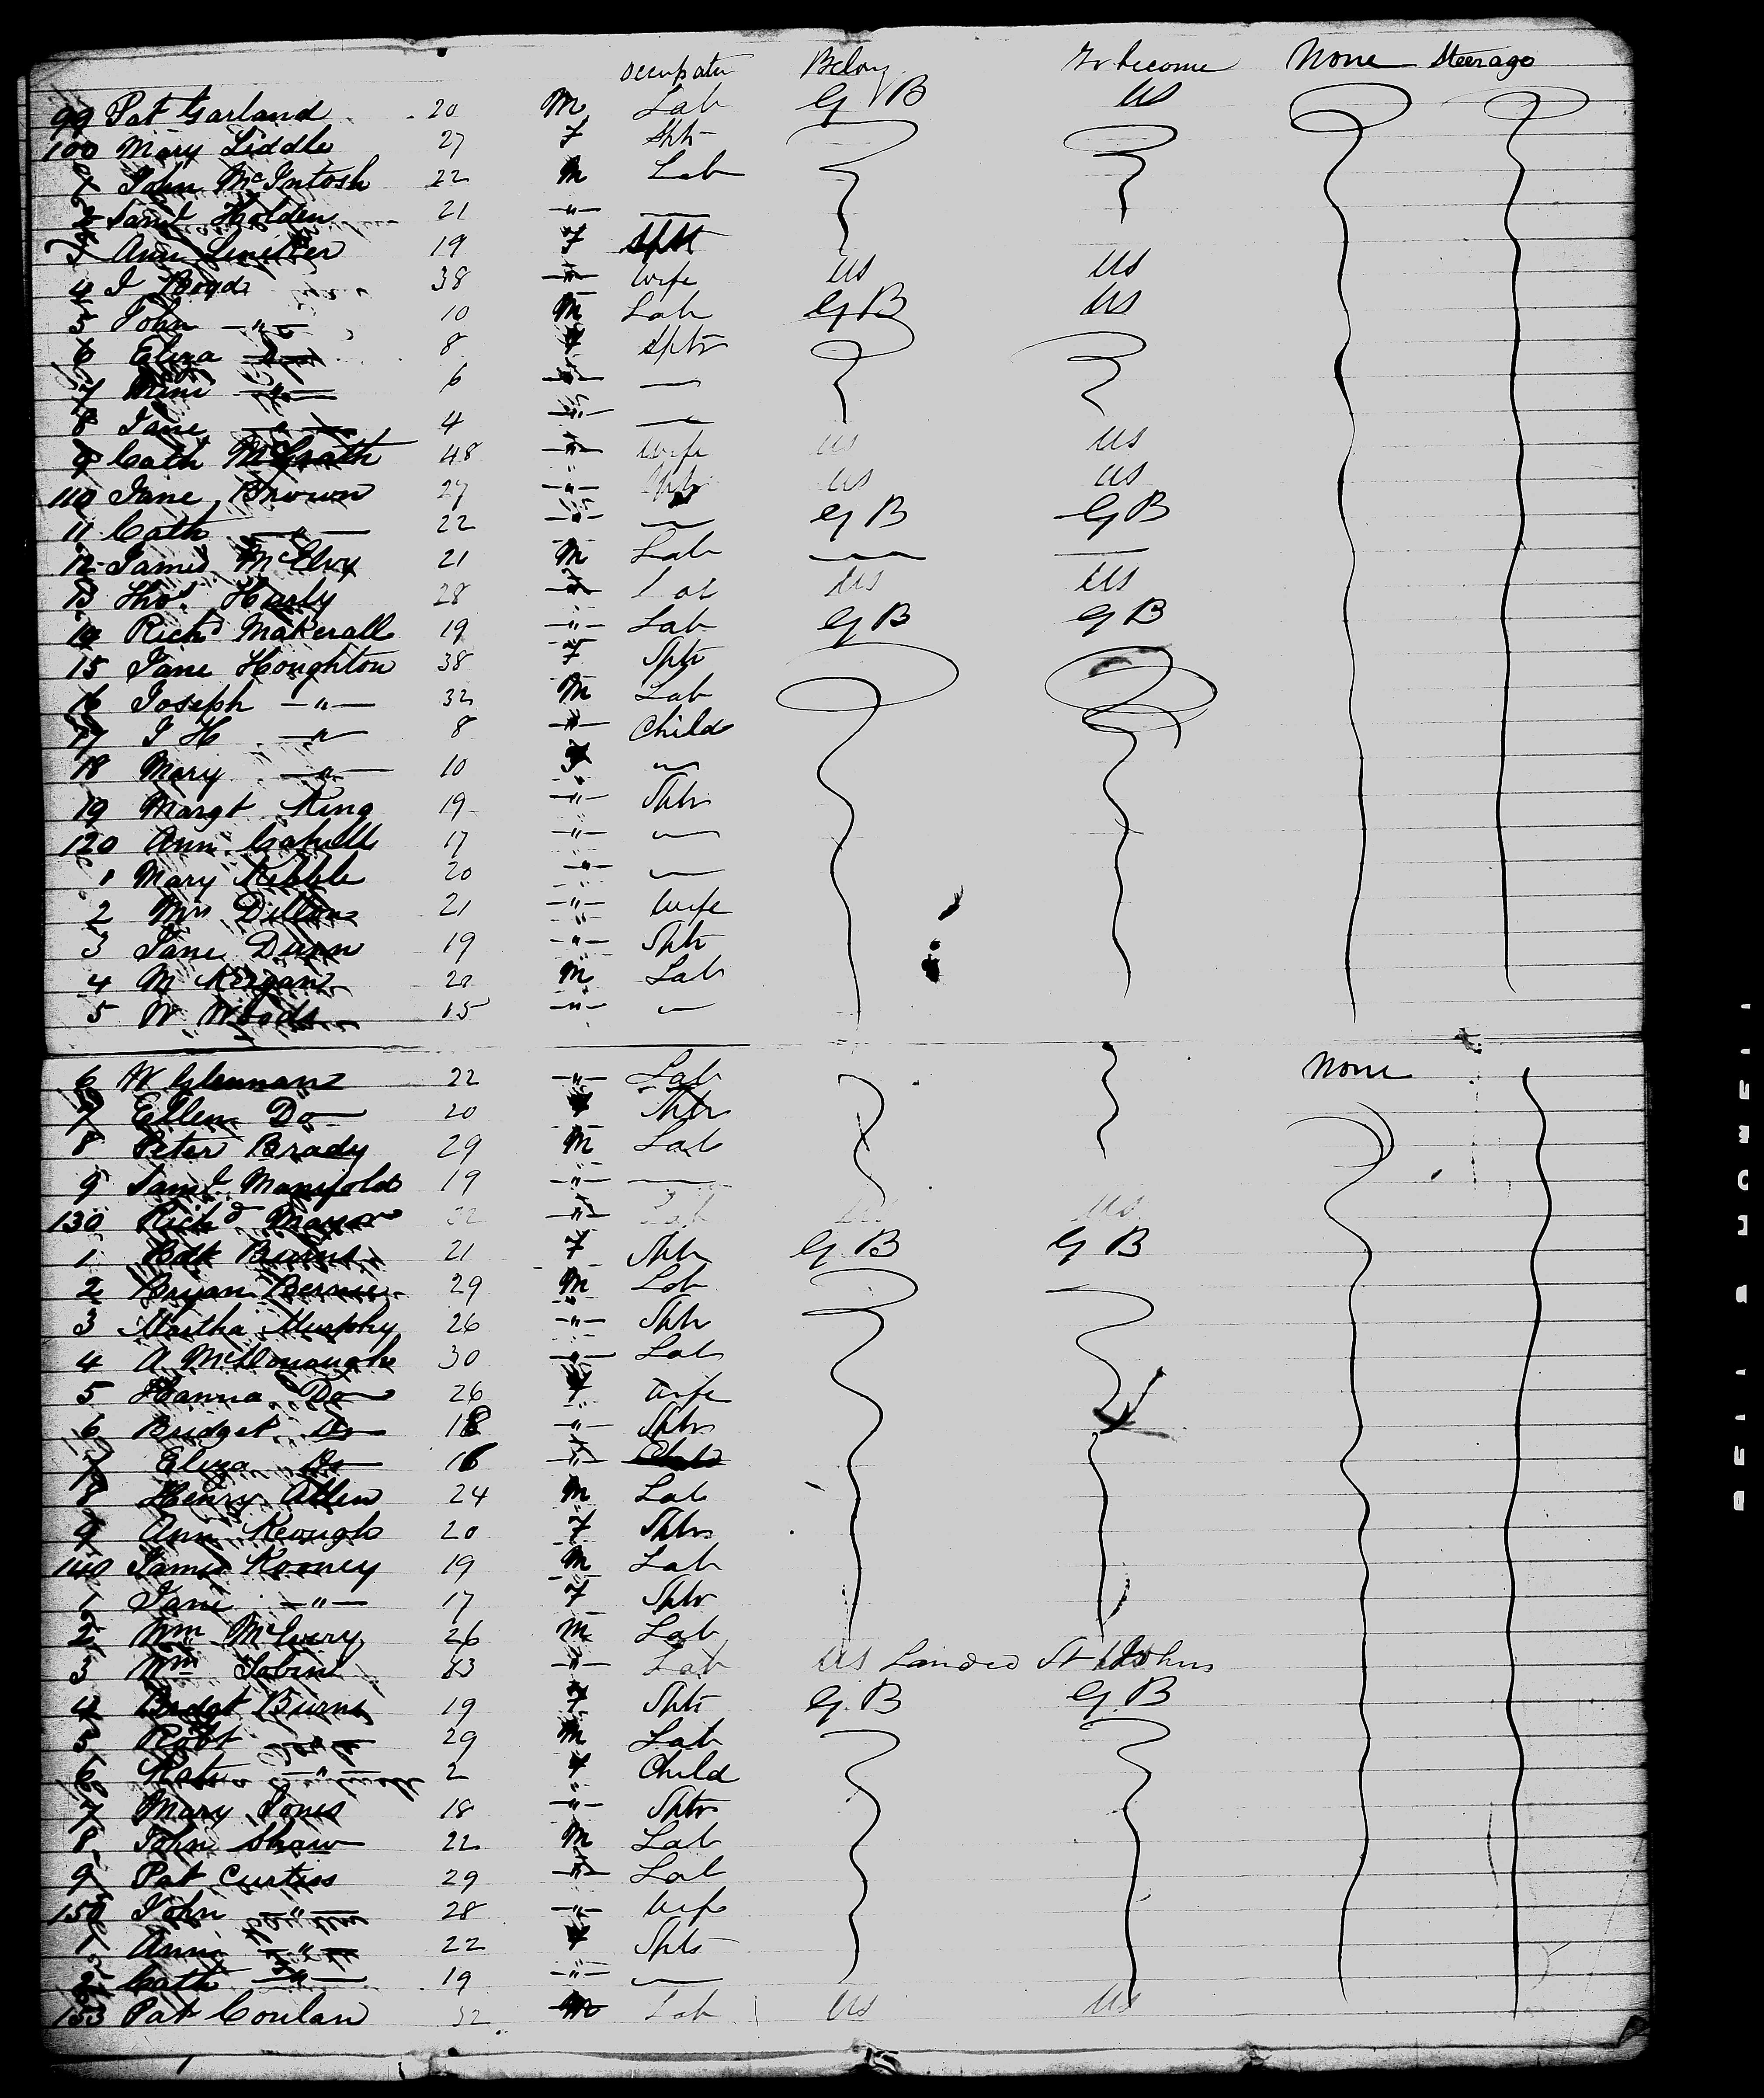 Belong To become None Steerage
99 Pat Garland 20 M Lab G B US
100 Mary Liddle 27 F Sptr
1 John McIntosh 22 M Lab
2 Saml Holden 21 -"- —
3 Ann 19 F Spst
4 J Boyd 38 -"- Wife US US
5 John -"- 10 M Lab G B US
6 Eliza 8 F Sptr
7 -"- 6 -"- —
8 Jane -"- 4 -"- —
9 Cath McGrath 48 -"- Wife US US
110 Jane Brown 27 -"- Sptr US US
11 Cath -"- 22 -"- — G B G B
12 James McElvy 21 M Lab — —
13 Thos. Harly 28 -"- Lab US US
14 Richd Makerall 19 -"- Lab G B G B
15 Jane Houghton 38 F Sptr
16 Joseph -"- 32 M Lab
17 J H -"- 8 -"- Child
18 Mary -"- 10 F —
19 Margt King 19 -"- Sptr
120 Ann Cahill 17 -"- —
1 Mary Kibble 20 -"- —
2 Mrs Dillon 21 -"- Wife
3 Jane Dunn 19 -"- Sptr
4 M 20 M Lab
5 W Woods 15 -"- —
6 W Glennan 22 -"- Lab None
7 Ellen Do 20 F Sptr
8 Peter Brady 29 M Lab
9 Saml. Manifold 19 -"- —
130 Richd 32 -"- Lab US US
1 Burns 21 F Sptr G. B G B
2 Bryan 29 M Lab
3 Martha Murphy 26 -"- Sptr
4 A McDonaugh 30 -"- Lab
5 Hanna Do 26 F Wife
6 Bridget Do 18 -"- Sptr
7 Eliza Do 16 -"-
8 Henry Allen 24 M Lab
9 Ann Keough 20 F Sptr
140 James Rooney 19 M Lab
1 Jane -"- 17 F Sptr
2 Wm McEvery 26 M Lab
3 Wm Tobin -"- Lab US Landed St Johns
4 Bridgt Burns 19 F Sptr G. B G. B
5 Robt 29 M Lab
6 Kate -"- 2 F Child
7 Mary Jones 18 -"- Sptr
8 John Shaw 22 M Lab
9 Pat Curtiss 29 -"- Lab
150 John -"- 28 -"- Wife
1 Ann -"- 22 F Sptr
2 Cath -"- 19 -"- —
153 Pat Conlan 32 M Lab US US